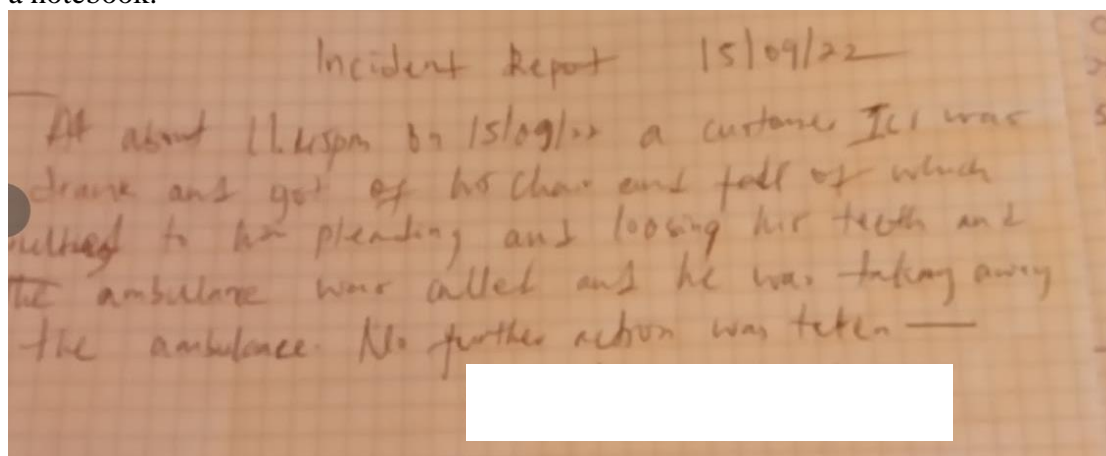 a notebook.
Incident Report 15/09/22
At about 11.45pm on 15/09/22 a customer IC1 was
drank and got of his chair and fall of which
to his pleading and loosing his teeth and
The ambulance was called and he was taking away
the ambulance. No further action was teken